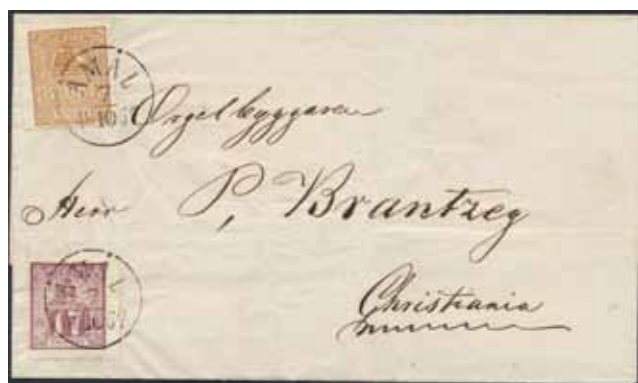 ÅMÅL
Orgelbyggaren
Herr P. Brantzeg
ÅMÅL
Christiania